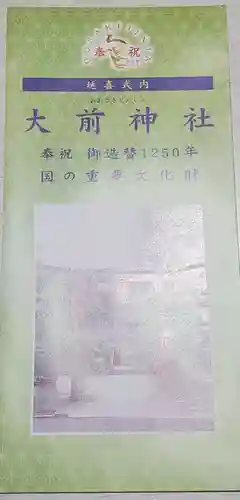 OOSAKIJINJA
奉祝
延喜式内
おおさきじんじゃ
大前神社
奉祝 御造替1250年
国の重要文化財